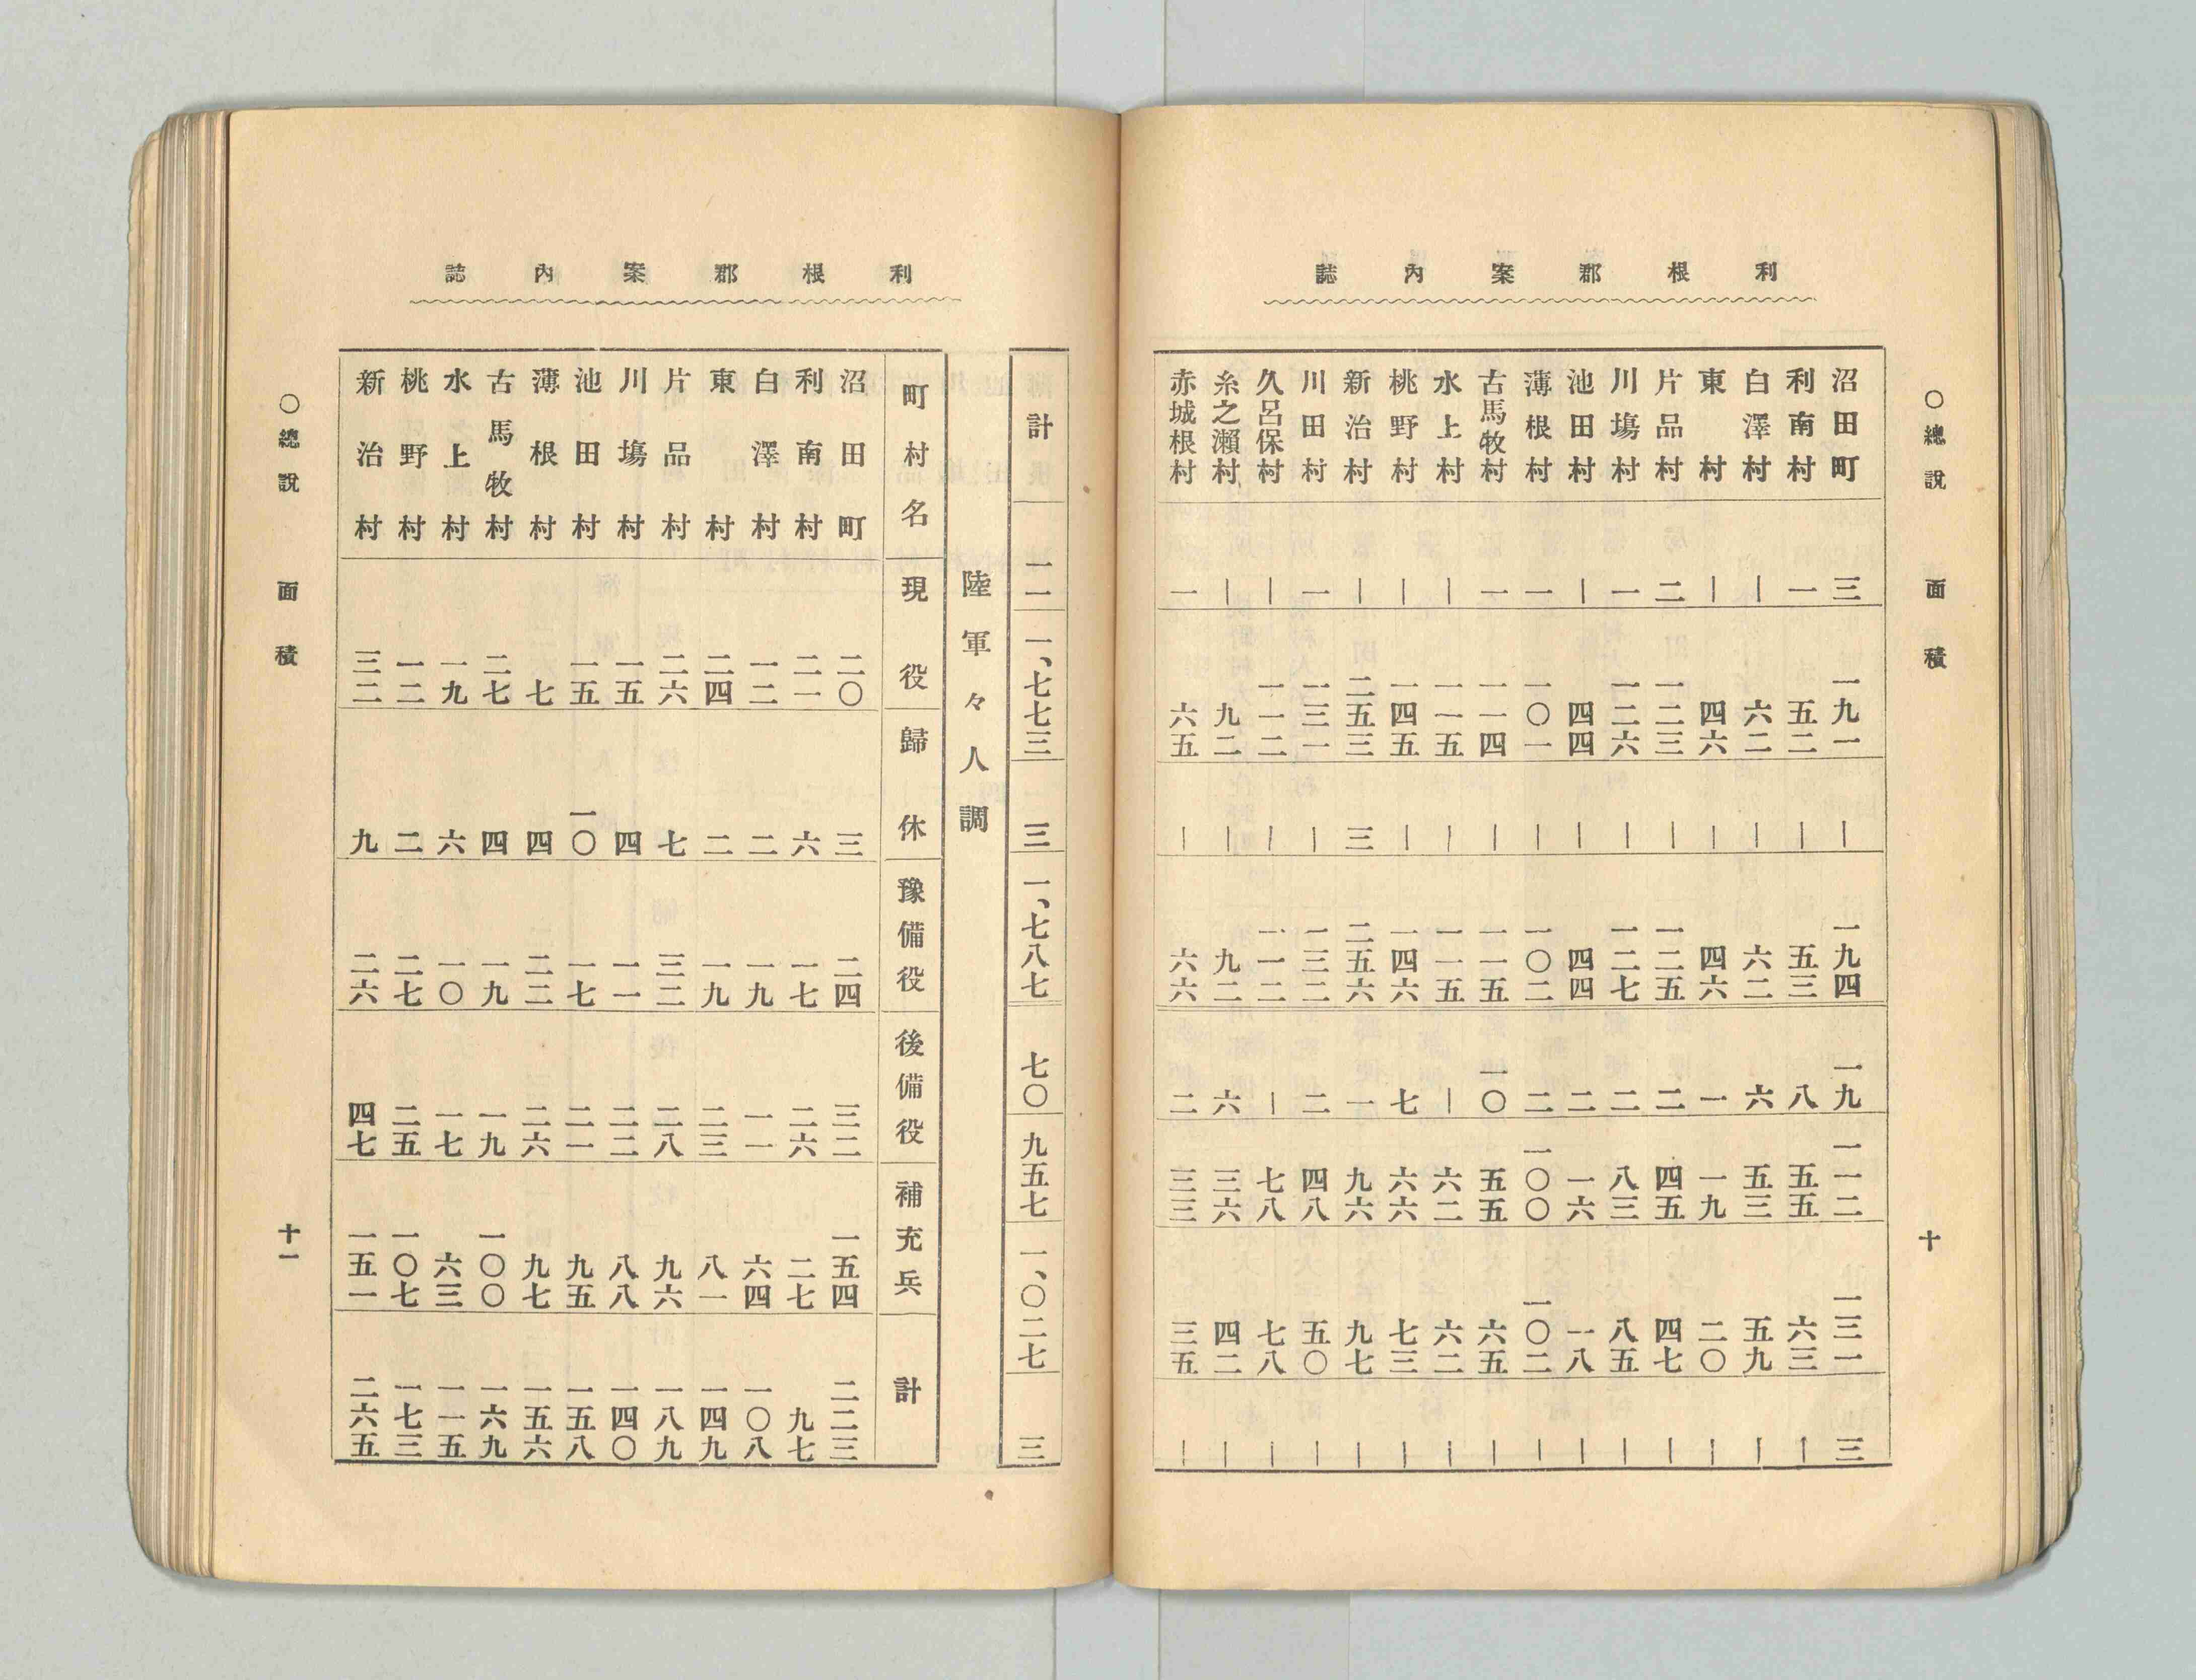 利根郡案內誌
○總說　面積　十
沼田町　三　一九一　｜　一九四　一九　一一二　一三一　三
利南村　一　五二　｜　五三　八　五五　六三　｜
白澤村　｜　六二　｜　六二　六　五三　五九　｜
東村　｜　四六　｜　四六　一　一九　二〇　｜
片品村　二　一二三　｜　一二五　二　四五　四七　｜
川塲村　一　一二六　｜　一二七　二　八三　八五　｜
池田村　｜　四四　｜　四四　二　一六　一八　｜
薄根村　一　一〇一　｜　一〇二　二　一〇〇　一〇二　｜
古馬牧村　一　一一四　｜　一一五　一〇　五五　六五　｜
水上村　｜　一一五　｜　一一五　｜　六二　六二　｜
桃野村　｜　一四五　｜　一四六　七　六六　七三　｜
新治村　｜　二五三　三　二五六　一　九六　九七　｜
川田村　一　一三一　｜　一三二　二　四八　五〇　｜
久呂保村　｜　一一二　｜　一一二　｜　七八　七八　｜
糸之瀨村　｜　九二　｜　九二　六　三六　四二　｜
赤城根村　一　六五　｜　六六　二　三三　三五　｜
利根郡案內誌
計　一一　一、七七三　三　一、七八七　七〇　九五七　一、〇二七　三
陸軍々人調
町村名　現役　歸休　豫備役　後備役　補充兵　計
沼田町　二〇　三　二四　二二　一五四　二二三
利南村　二一　六　一七　二六　二七　九七
白澤村　一二　二　一九　一一　六四　一〇八
東村　二四　二　一九　二三　八一　一四九
片品村　二六　七　三二　二八　九六　一八九
川塲村　一五　四　一一　二二　八八　一四〇
池田村　一五　一〇　一七　二一　九五　一五八
薄根村　七　四　二二　二六　九七　一五六
古馬牧村　二七　四　一九　一九　一〇〇　一六九
水上村　一九　六　一〇　一七　六三　一一五
桃野村　一二　二　二七　二五　一〇七　一七三
新治村　三二　九　二六　四七　一五一　二六五
○總說　面積　十一